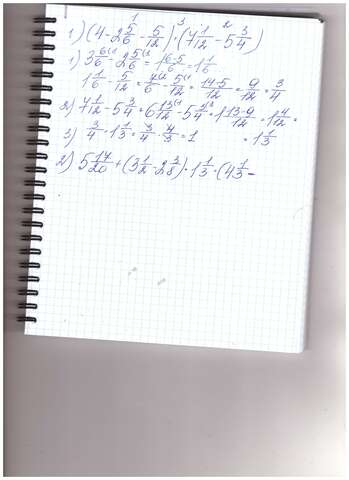 1) (4 - 2 5/6 - 5/12) · (7 1/12 - 5 3/4)
1) 3 6/6 - 2 5/6 = 1 6-5/6 = 1 1/6
1 1/6 - 5/12 = 7/6 - 5/12 = 14-5/12 = 9/12 = 3/4
2) 7 1/12 - 5 3/4 = 6 13/12 - 5 3/4 = 1 13-9/12 = 1 4/12 =
3) 3/4 · 1 1/3 = 3/4 · 4/3 = 1 = 1 1/3
2) 5 17/20 + (3 1/2 - 2 3/8) · 1 1/3 · (4 1/3 -